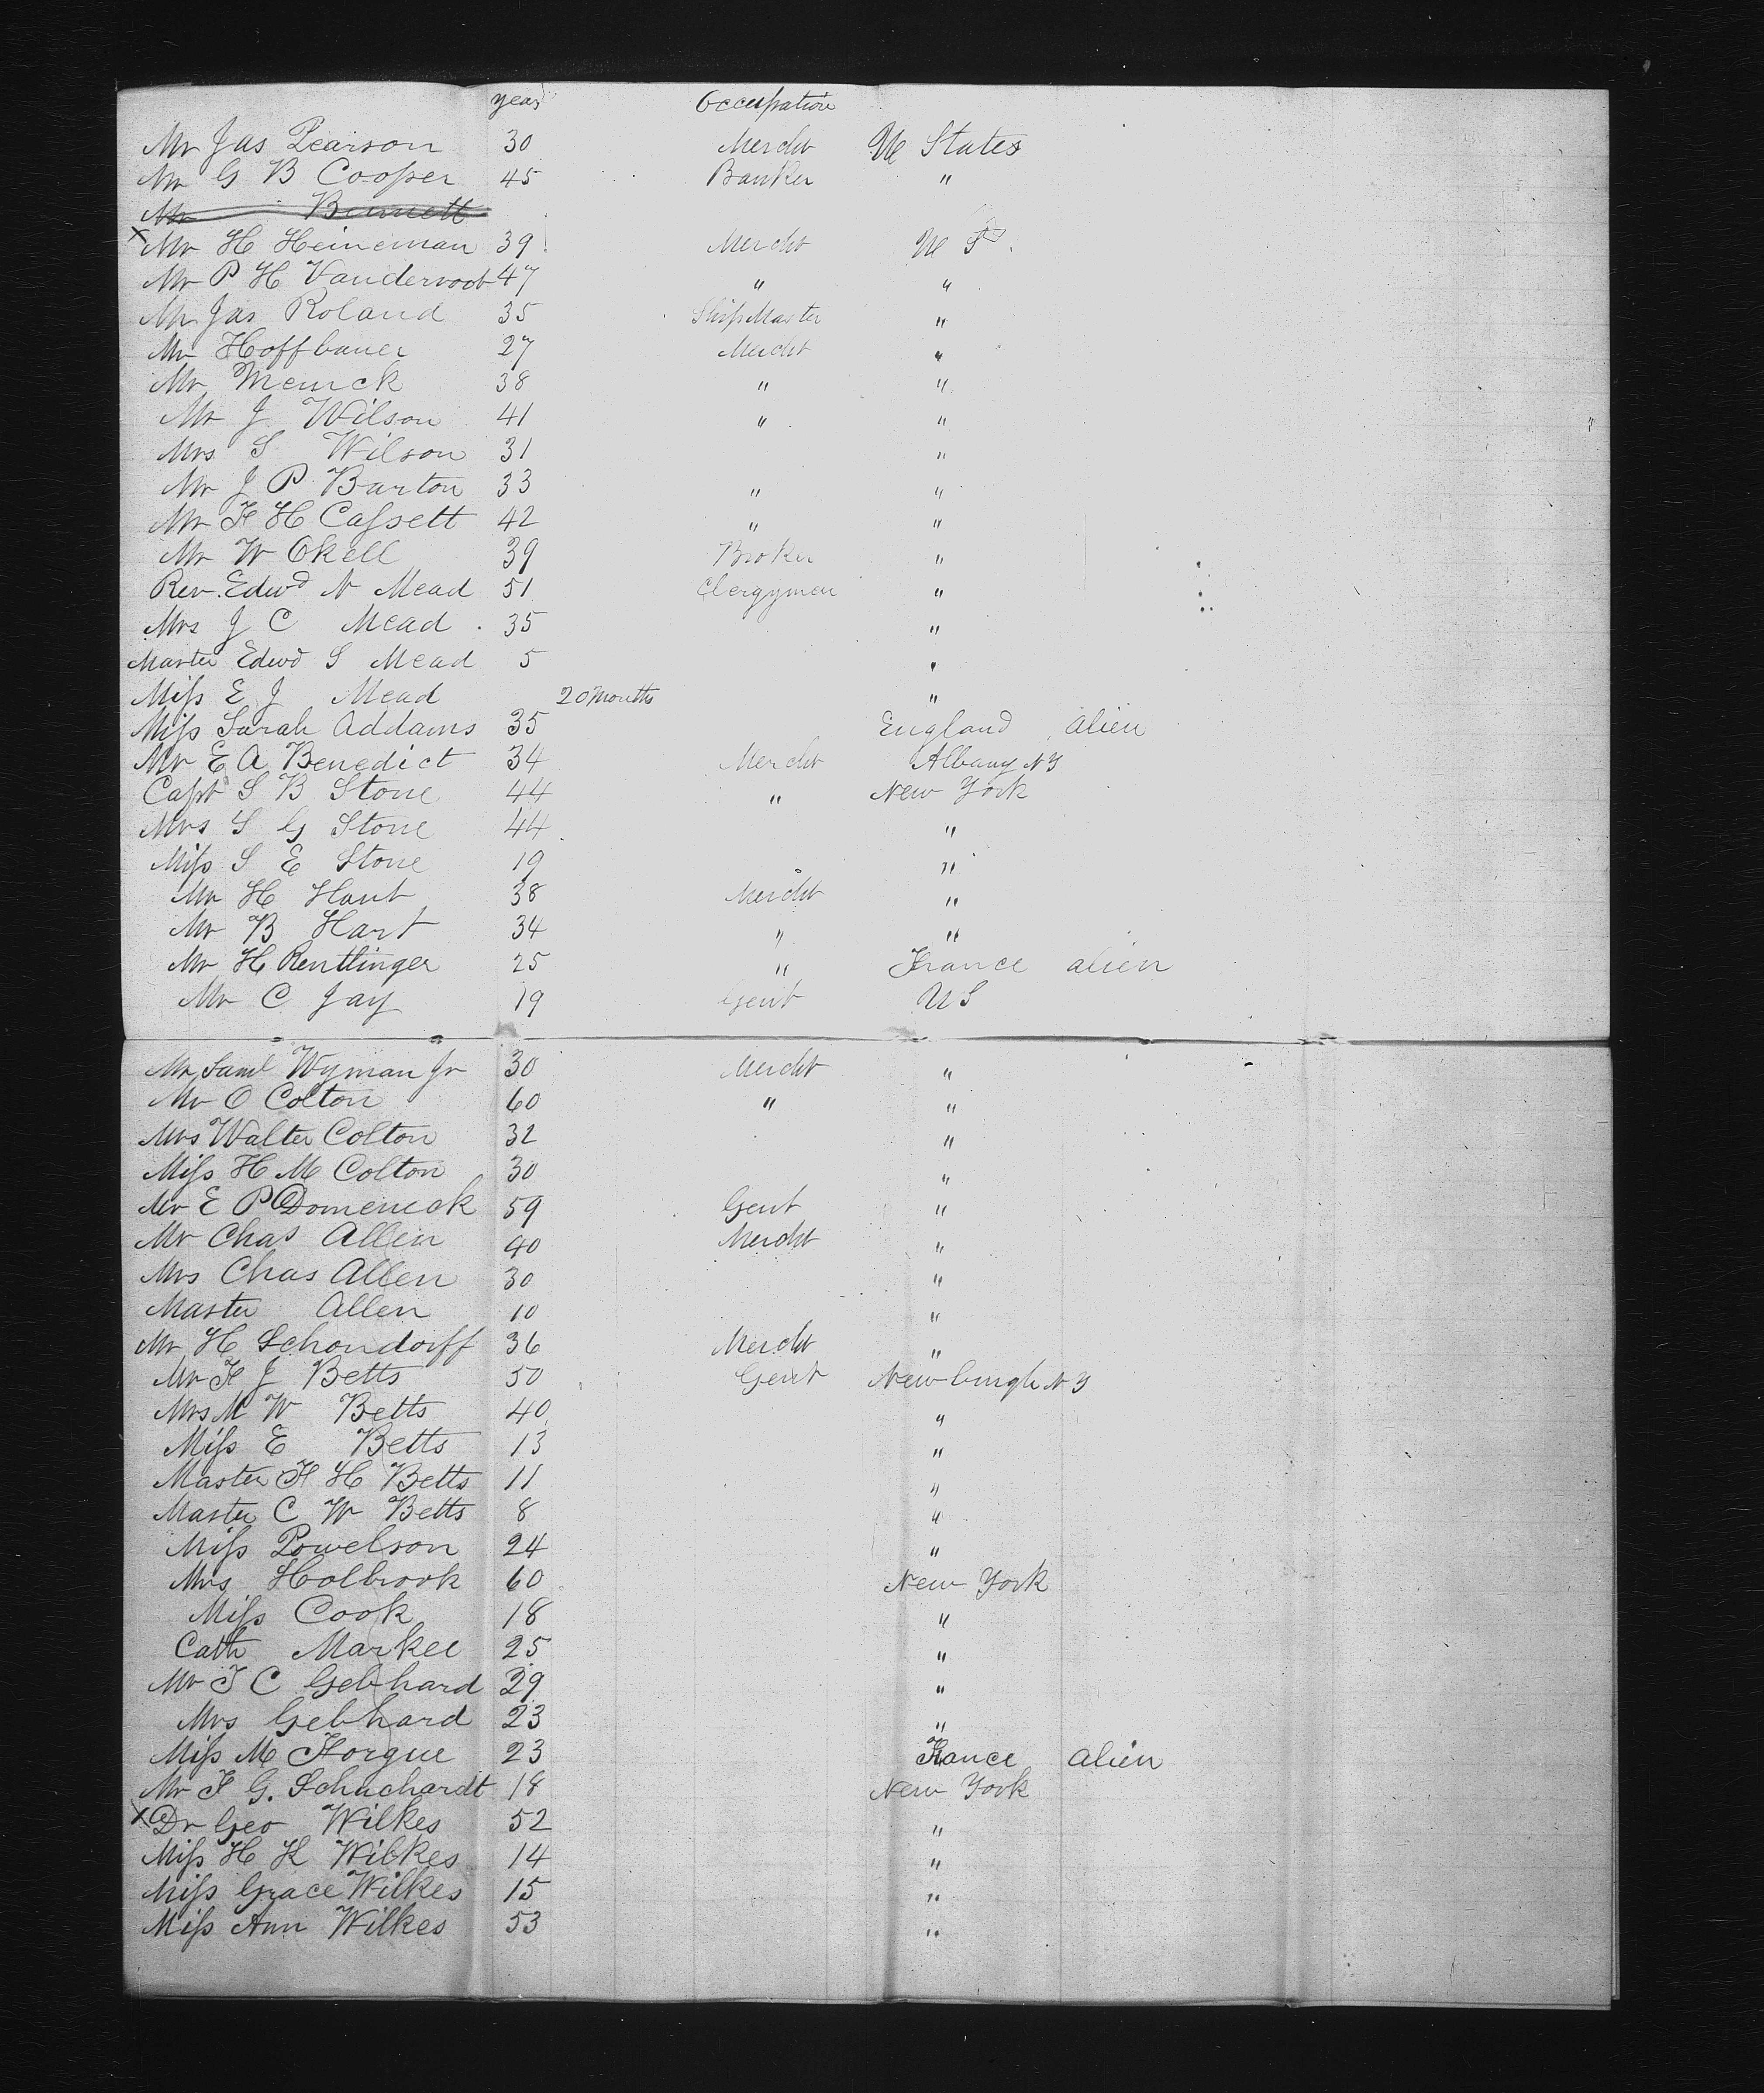 years Occupation
Mr Jas Pearson 30 Mercht U States
Mr G B Cooper 45 Banker "
Mr Bennett
x Mr H Heineman 39 Mercht U S
Mr P H Vandervoot 47 " "
Mr Jas Roland 35 Ship Master "
Mr Hoffbauer 27 Mercht "
Mr Merrick 38 " "
Mr J Wilson 41 " "
Mrs S Wilson 31 "
Mr J P Barton 33 " "
Mr F H Cassett 42 " "
Mr W Okell 39 Broker "
Rev. Edwd N Mead 51 Clergyman "
Mrs J C Mead 35 "
Master Edwd S Mead 5 "
Miss E J Mead 20 Months "
Miss Sarah Addams 35 England Alien
Mr E A Benedict 34 Mercht Albany N Y
Capt S B Stone 44 " New York
Mrs S G Stone 44 "
Miss S E Stone 19 "
Mr H Hart 38 Mercht "
Mr B Hart 34 " "
Mr H Rentlinger 25 " France alien
Mr C Jay 19 Gent U S
Mr Saml Wyman Jr 30 Mercht "
Mr O Colton 60 " "
Mrs Walter Colton 32 "
Miss H M Colton 30 "
Mr E P Domenick 59 Gent "
Mr Chas Allen 40 Mercht "
Mrs Chas Allen 30 "
Master Allen 10 "
Mr H Schondorff 36 Mercht "
Mr F J Betts 50 Gent Newburgh N Y
Mrs M W Betts 40 "
Miss E Betts 13 "
Master F H Betts 11 "
Master C W Betts 8 "
Miss Powelson 24 "
Mrs Holbrook 60 New York
Miss Cook 18 "
Cath Markee 25 "
Mr F C Gebhard 29 "
Mrs Gebhard 23 "
Miss M Forgue 23 France Alien
Mr F G. Schuchardt 18 New York
x Dr Geo Wilkes 52 "
Miss H K Wilkes 14 "
Miss Grace Wilkes 15 "
Miss Ann Wilkes 53 "